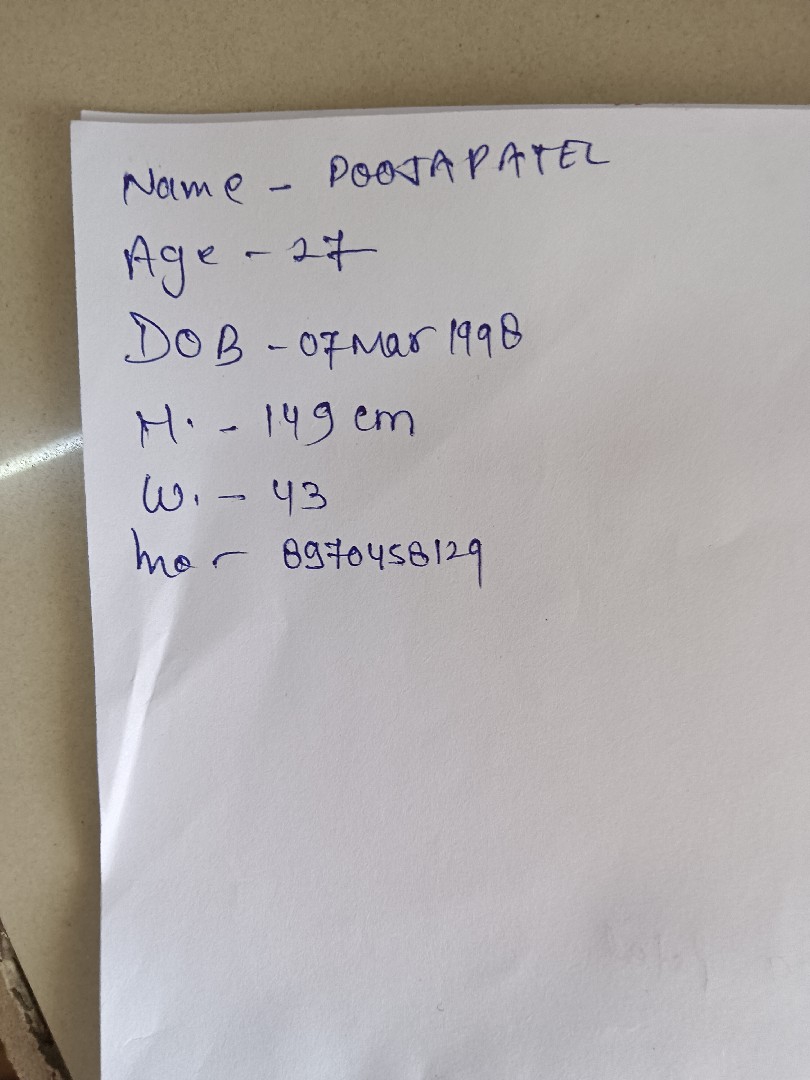 Name - POOJA PATEL
Age - 27
DOB - 07 Mar 1998
H. - 149 cm
W. - 43
Mo - 8970458129